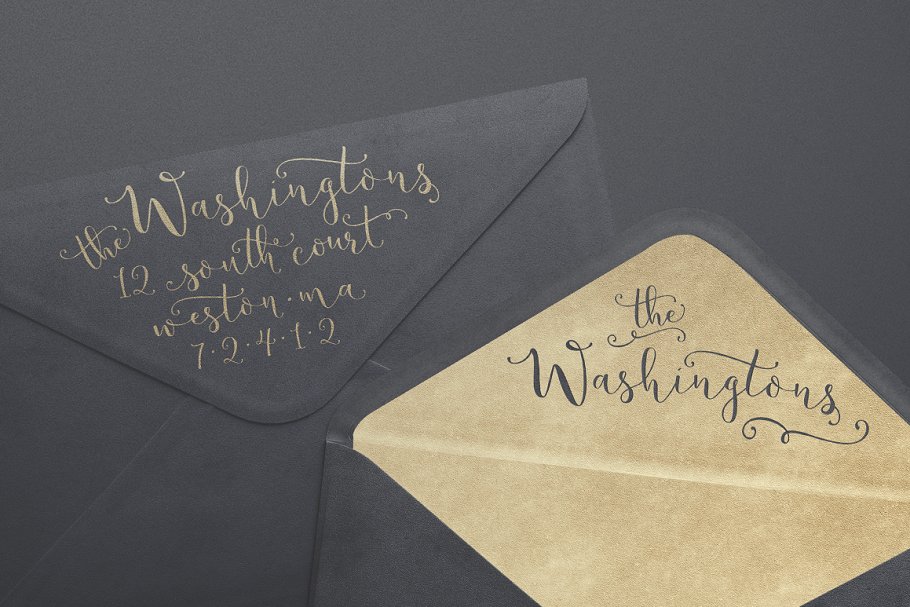 the Washingtons
12 south court
weston·ma
7·2·4·1·2
the
Washingtons